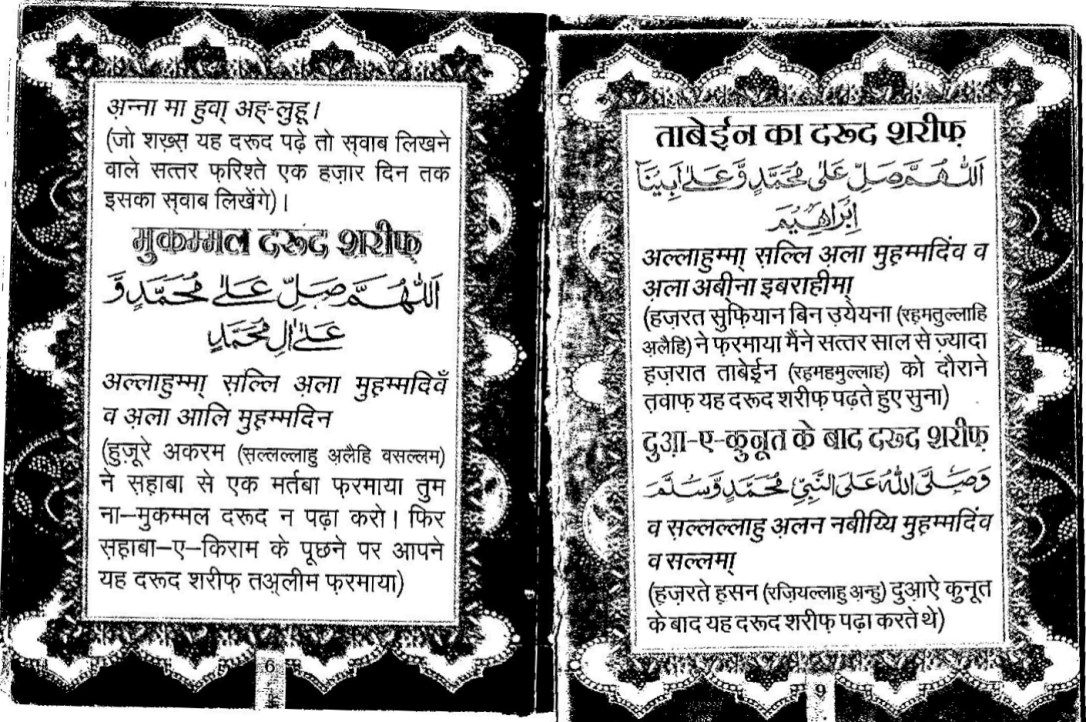 अ़न्ना मा हुवा् अह्-लुहू।
(जो शख़्स़ यह दरूद पढ़े तो स़वाब लिखने
वाले सत्तर फ़रिश्ते एक हज़ार दिन तक
इसका स़वाब लिखेंगे)।
मुकम्मल दरूद शरीफ़
اَللّٰهُمَّ صَلِّ عَلٰى مُحَمَّدٍ وَّ
عَلٰى اٰلِ مُحَمَّدٍ
अल्लाहुम्मा् स़ल्लि अ़ला मुह़म्मदिवँ
व अ़ला आलि मुह़म्मदिन
(हुज़ूरे अकरम (स़ल्लल्लाहु अ़लैहि वसल्लम)
ने स़ह़ाबा से एक मर्तबा फ़रमाया तुम
ना–मुकम्मल दरूद न पढ़ा करो। फिर
स़ह़ाबा–ए–किराम के पूछने पर आपने
यह दरूद शरीफ़ तअ़्लीम फ़रमाया)
6
ताबेई़न का दरूद शरीफ़
اَللّٰهُمَّ صَلِّ عَلٰى مُحَمَّدٍ وَّ عَلٰى اَبِيْنَا
اِبْرَاهِيْمَ
अल्लाहुम्मा् स़ल्लि अ़ला मुह़म्मदिंव व
अ़ला अबीना इबराहीमा्
(हज़रत सुफ़ियान बिन उ़येयना (रह़मतुल्लाहि
अ़लैहि) ने फ़रमाया मैंने सत्तर साल से ज़्यादा
ह़ज़रात ताबेई़न (रहमहमुल्लाह) को दौराने
त़वाफ़ यह दरूद शरीफ़ पढ़ते हुए सुना)
दुआ़-ए-क़ुनूत के बाद दरूद शरीफ़
وَصَلَّى اللّٰهُ عَلَى النَّبِيِّ مُحَمَّدٍ وَّسَلَّمَ
व स़ल्लल्लाहु अ़लन नबीय्यि मुह़म्मदिंव
व सल्लमा्
(ह़ज़रते ह़सन (रज़ियल्लाहु अ़न्हु) दुआ़ऐ क़ुनूत
के बाद यह दरूद शरीफ़ पढ़ा करते थे)
9